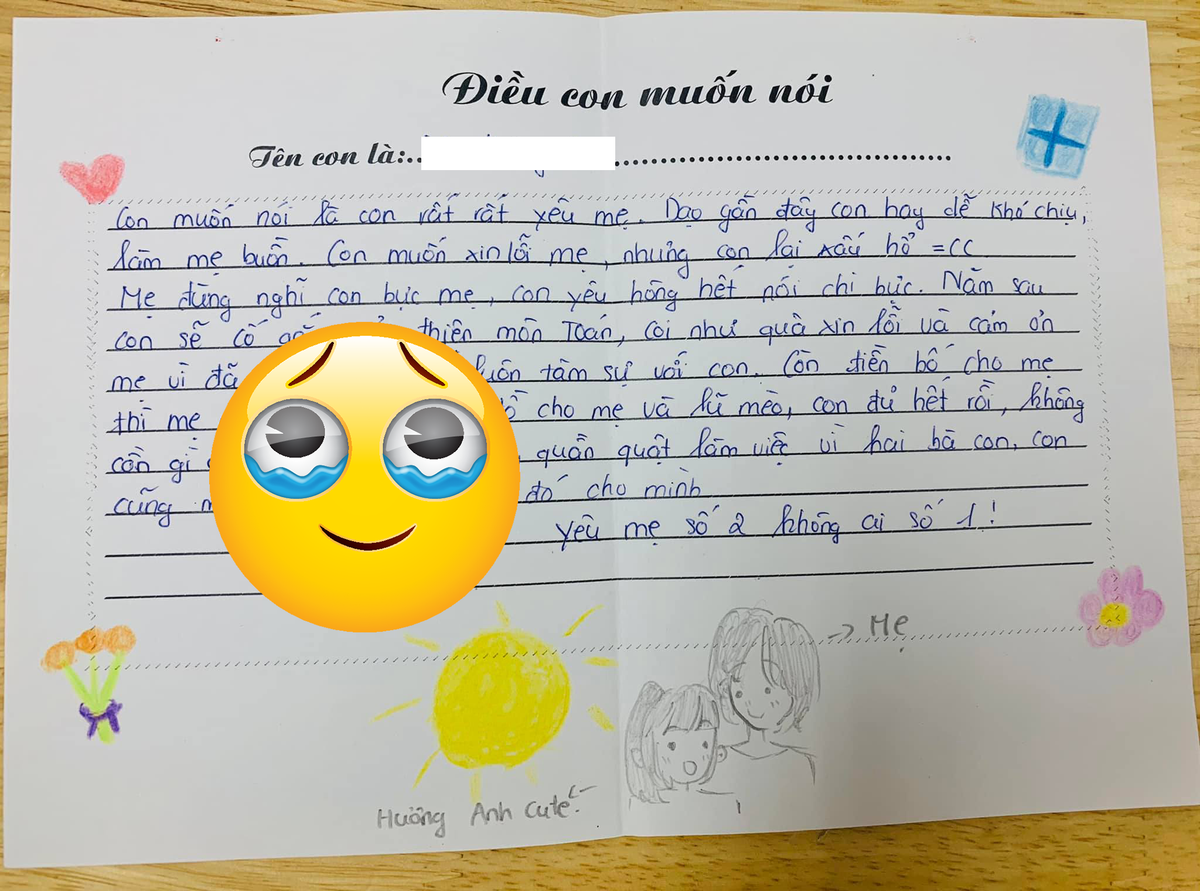 Điều con muốn nói
Tên con là:
Con muốn nói là con rất rất yêu mẹ. Dạo gần đây con hay dễ khó chịu,
làm mẹ buồn. Con muốn xin lỗi mẹ, nhưng con lại xấu hổ =((
Mẹ đừng nghĩ con bực mẹ, con yêu hông hết nói chi bực. Năm sau
con sẽ cố thiện môn Toán, coi như quà xin lỗi và cảm ơn
mẹ vì đã luôn tâm sự với con. Còn tiền bố cho mẹ
thì mẹ cho mẹ và lũ mèo, con đủ hết rồi, không
cần gì quần quật làm việc vì hai bà con, con
cũng đó cho mình
Yêu mẹ số 2 không ai số 1!
→ Mẹ
Hường Anh cute